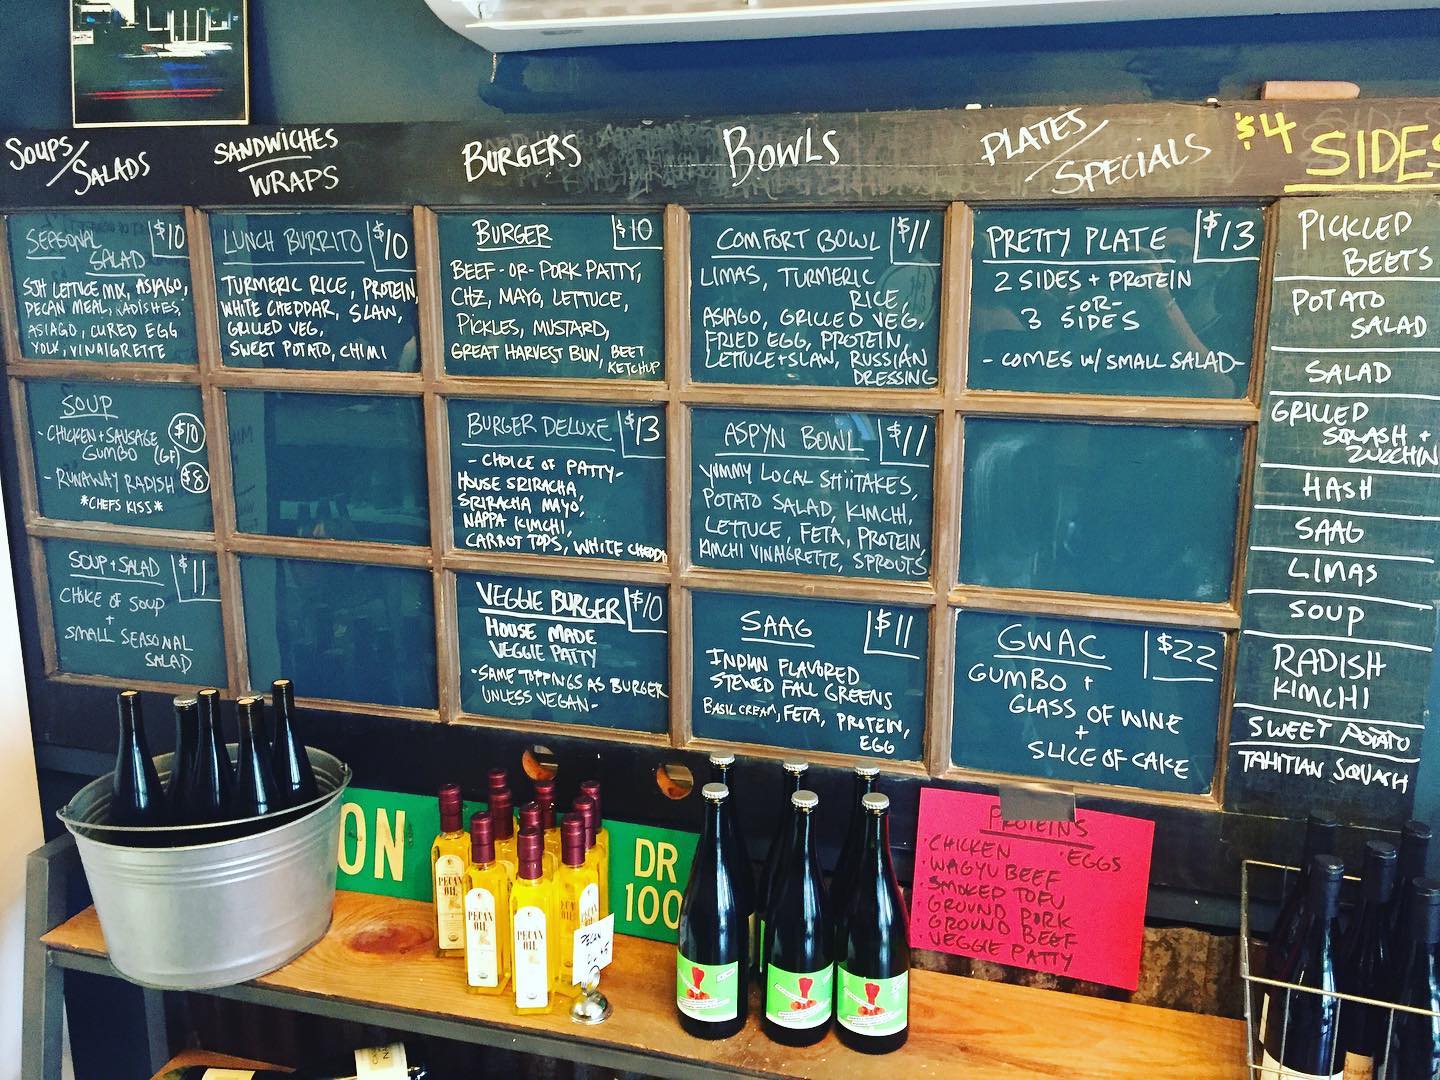 SOUPS/
SALADS
SEASONAL
SALAD
$10
SJH LETTUCE MIX, ASIAGO,
PECAN MEAL, RADISHES,
ASIAGO, CURED EGG
YOLK, VINAIGRETTE
SOUP
- CHICKEN + SAUSAGE $10
GUMBO (GF)
- RUNAWAY RADISH $8
*CHEFS KISS*
SOUP + SALAD $11
CHOICE OF SOUP
+
SMALL SEASONAL
SALAD
SANDWICHES
WRAPS
LUNCH BURRITO $10
TURMERIC RICE, PROTEIN,
WHITE CHEDDAR, SLAW,
GRILLED VEG,
SWEET POTATO, CHIMI
BURGERS
BURGER $10
BEEF -OR- PORK PATTY,
CHZ, MAYO, LETTUCE,
PICKLES, MUSTARD,
GREAT HARVEST BUN, BEET
KETCHUP
BURGER DELUXE $13
- CHOICE OF PATTY -
HOUSE SRIRACHA
SRIRACHA MAYO,
NAPPA KIMCHI,
CARROT TOPS, WHITE CHEDD
VEGGIE BURGER $10
HOUSE MADE
VEGGIE PATTY
-SAME TOPPINGS AS BURGER
UNLESS VEGAN-
BOWLS
COMFORT BOWL $11
LIMAS, TURMERIC
RICE,
ASIAGO, GRILLED VEG,
FRIED EGG, PROTEIN,
LETTUCE+SLAW, RUSSIAN
DRESSING
ASPYN BOWL $11
YUMMY LOCAL SHIITAKES,
POTATO SALAD, KIMCHI,
LETTUCE, FETA, PROTEIN,
KIMCHI VINAIGRETTE, SPROUTS
SAAG $11
INDIAN FLAVORED
STEWED FALL GREENS
BASIL CREAM, FETA, PROTEIN,
EGG
PLATES/
SPECIALS
PRETTY PLATE $13
2 SIDES + PROTEIN
-OR-
3 SIDES
- COMES W/ SMALL SALAD-
GWAC $22
GUMBO +
GLASS OF WINE
+
SLICE OF CAKE
$4 SIDES
PICKLED
BEETS
POTATO
SALAD
SALAD
GRILLED
SQUASH +
ZUCCHIN
HASH
SAAG
LIMAS
SOUP
RADISH
KIMCHI
SWEET POTATO
TAHITIAN SQUASH
PROTEINS
· CHICKEN · EGGS
· WAGYU BEEF
· SMOKED TOFU
· GROUND PORK
· GROUND BEEF
· VEGGIE PATTY
ON
DR
100
PECAN
OIL
PECAN
OIL
PECAN
OIL
PECAN